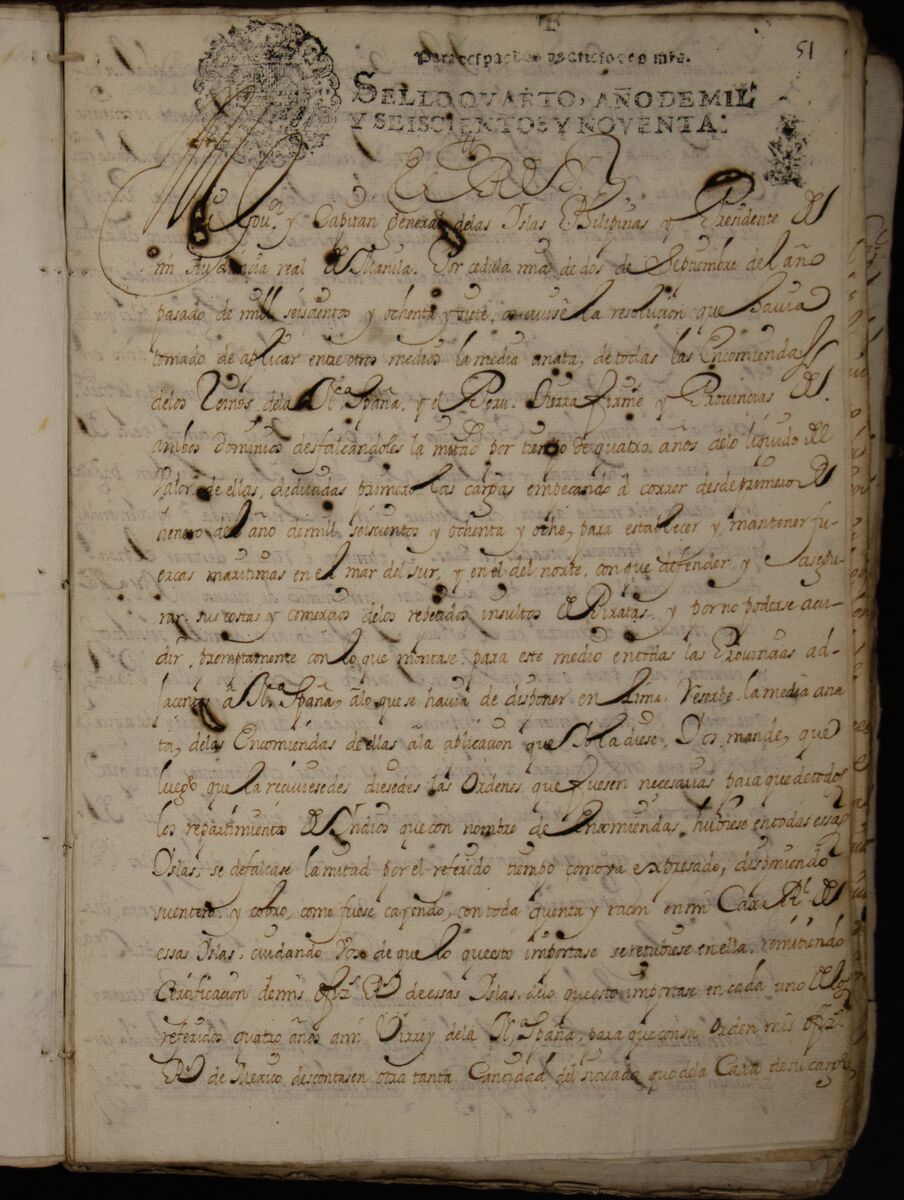 51
Para despachos de oficio dos mrs.
SELLO QVARTO, AÑO DE MIL
Y SEISCIENTOS Y NOVENTA.
El Rey
y Capitan general de las Islas Philipinas y Presidente de
mi Audiencia real de Manila. Por cedula mia de dos de Septiembre del año
pasado de mill seiscientos y ochenta y siete, os avissè la resolucion que havia
tomado de aplicar entre otros medios la media anata, de todas las Encomiendas
delos Reinos dela Nª Spaña, y el Peru. tierra firme y Provincias de
ambos dominios desfalcandoles la mitad por tiempo de quatro años delo liquido del
Valor de ellas, deducidas primero las cargas empecando à correr desde primero de
henero del año de mill seiscientos y ochenta y ocho, para establecer y mantener fu-
ercas maritimas en el mar del sur, y en el del norte, con que defender y asegu-
rar sus costas y comercios delos repetidos insultos de Piratas, y por no poderse acu-
dir, promptamente con lo que montase para este medio en todas las Provincias ad-
jacentes à Nª Spaña, àlo que se havia de disponer en Lima. Reserbe la media ana
ta, delas Encomiendas de ellas àla aplicacion que Yo la diese, Y os mandè, que
luego que la reciviesedes diesedes las ordenes que fuesen necesarias para que de todos
los repartimientos de Yndios que con nombre de Encomiendas hubiese en todas essas
Yslas, se defalcase la mitad por el referido tiempo como va expresado, disponiendo
su entero y cobro, como fuese cayendo, con toda quenta y racon en mi Caxa Rl. de
essas Islas, cuidando Vos de que lo que esto importase se retubiese en ella, remitiendo
Certificacion de mis ofizs. Rs de essas Islas, delo que esto importase en cada uno de los
referidos quatro años à mi Virrey dela Nª Spaña, para que con su orden mis ofizs.
Rs de Mexico descontasen otra tanta Cantidad del situado que dela Caxa de su cargo